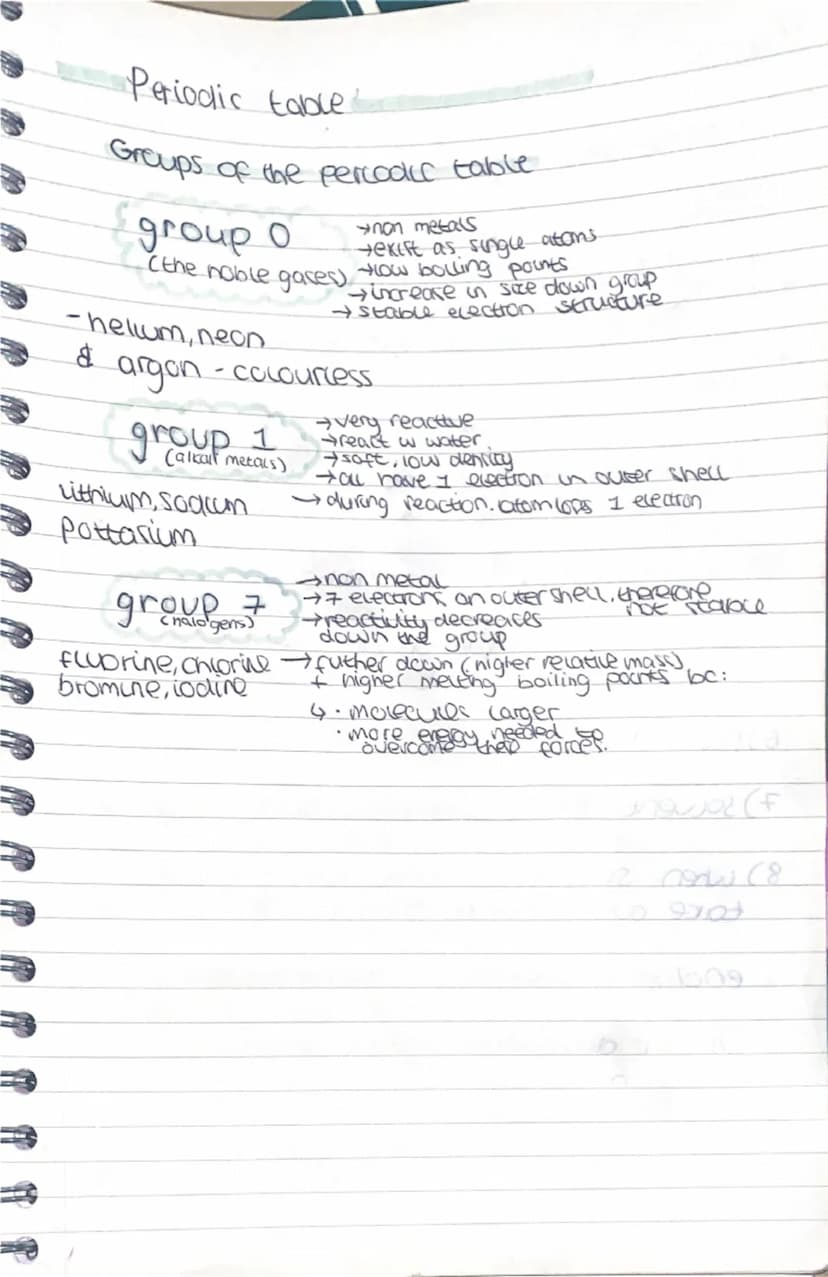 Periodic table
Groups of the periodic table
group 0
(the noble gases)
→non metals
→exist as single atoms
→low boiling points
→increase in size down group
→stable electron structure
-helium, neon
& argon - colourless
group 1
(alkali metals)
→very reactive
→react w water
→soft, low density
→all have 1 electron in outer shell
→during reaction. atom lops 1 electron
lithium, sodium
pottasium
group 7
(halogens)
→non metal
→7 electrons on outer shell, therefore
not stable
→reactivity decreases
down the group
fluorine, chlorine
bromine, iodine
→futher down (higher relative mass)
+ higher melting boiling points bc:
↳ · molecules larger
· more energy needed to
overcome forces.